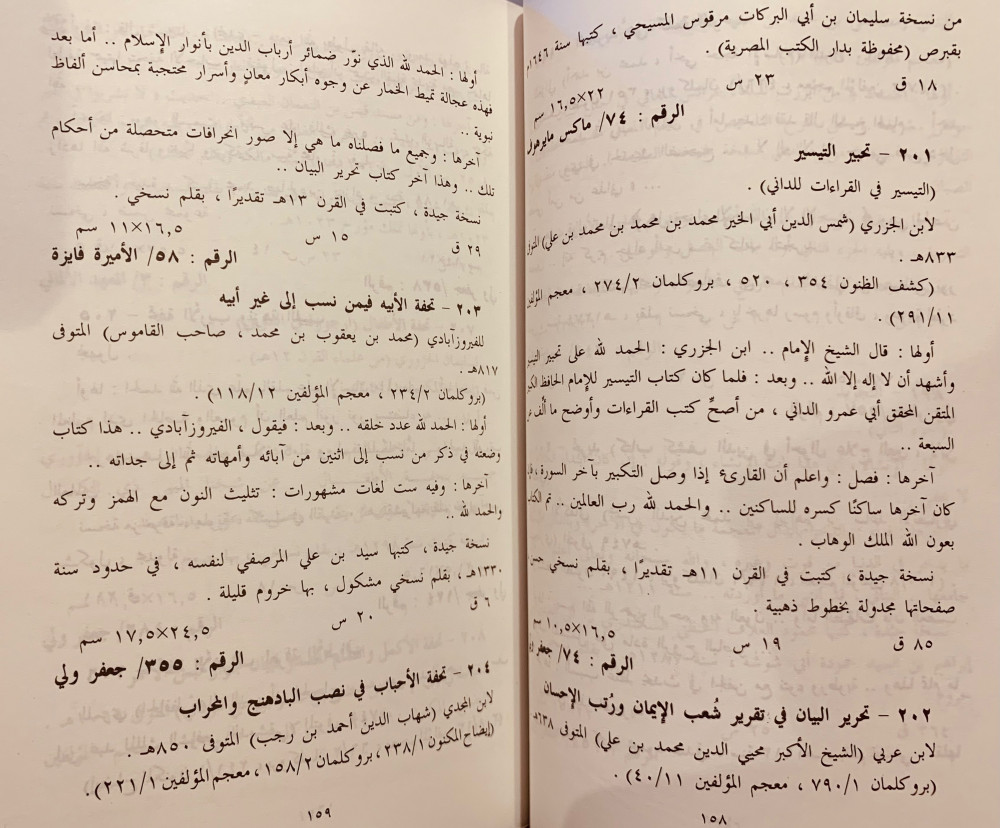 من نسخة سليمان بن أبي البركات مرقوس المسيحي ، كتبها سنة ٦٤٦ام
بقبرص (محفوظة بدار الكتب المصرية) .
١٨ ق ٢٣ س ٢٢×١٦,٥ سم
الرقم : ٧٤/ ماكس مايرهوف
٢٠١ - تحبير التيسير
(التيسير في القراءات للداني) .
لابن الجزري (شمس الدين أبي الخير محمد بن محمد بن محمد بن علي) المتوفى
٨٣٣هـ .
(كشف الظنون ٣٥٤ ، ٥٢٠ ، بروكلمان ٢٧٤/٢ ، معجم المؤلفين
٢٩١/١١) .
أولها : قال الشيخ الإمام .. ابن الجزري : الحمد لله على تحبير التيسير
وأشهد أن لا إله إلا الله .. وبعد : فلما كان كتاب التيسير للإمام الحافظ الكبير
المتقن المحقق أبي عمرو الداني ، من أصحِّ كتب القراءات وأوضح ما ألف
السبعة ..
آخرها : فصل : واعلم أن القارئ إذا وصل التكبير بآخر السورة ،
كان آخرها ساكنًا كسره للساكنين .. والحمد لله رب العالمين .. تم الكتاب
بعون الله الملك الوهاب .
نسخة جيدة ، كتبت في القرن ١١هـ تقديرًا ، بقلم نسخي حسن
صفحاتها مجدولة بخطوط ذهبية .
٨٥ ق ١٩ س ١٦,٥×١٠,٥ س
الرقم : ٧٤/ جعفر
٢٠٢ - تحرير البيان في تقرير شُعب الإيمان ورُتب الإحسان
لابن عربي (الشيخ الأكبر محيي الدين محمد بن علي) المتوفى ٦٣٨هـ
(بروكلمان ٧٩٠/١ ، معجم المؤلفين ٤٠/١١) .
١٥٨
أولها : الحمد لله الذي نوّر ضمائر أرباب الدين بأنوار الإسلام .. أما بعد
فهذه عجالة تميط الخمار عن وجوه أبكار معانٍ وأسرار محتجبة بمحاسن ألفاظ
نبوية ..
آخرها : وجميع ما فصلناه ما هي إلا صور انحرافات متحصلة من أحكام
تلك .. وهذا آخر كتاب تحرير البيان ..
نسخة جيدة ، كتبت في القرن ١٣هـ تقديرًا ، بقلم نسخي .
٢٩ ق ١٥ س ١٦,٥×١١ سم
الرقم : ٥٨/ الأميرة فايزة
٢٠٣ - تحفة الأبيه فيمن نسب إلى غير أبيه
للفيروزآبادي (محمد بن يعقوب بن محمد ، صاحب القاموس) المتوفى
٨١٧هـ .
(بروكلمان ٢٣٤/٢ ، معجم المؤلفين ١١٨/١٢) .
أولها : الحمد لله عدد خلقه .. وبعد : فيقول ، الفيروزآبادي .. هذا كتاب
وضعته في ذكر من نسب إلى اثنين من آبائه وأمهاته ثم إلى جداته ..
آخرها : وفيه ست لغات مشهورات : تثليث النون مع الهمز وتركه
والحمد لله ..
نسخة جيدة ، كتبها سيد بن علي المرصفي لنفسه ، في حدود سنة
١٣٣٠هـ ، بقلم نسخي مشكول ، بها خروم قليلة .
٦ ق ٢٠ س ٢٤,٥×١٧,٥ سم
الرقم : ٣٥٥/ جعفر ولي
٢٠٤ - تحفة الأحباب في نصب البادهنج والمحراب
لابن المجدي (شهاب الدين أحمد بن رجب) المتوفى ٨٥٠هـ .
(إيضاح المكنون ٢٣٨/١ ، بروكلمان ١٥٨/٢ ، معجم المؤلفين ٢٢١/١) .
١٥٩